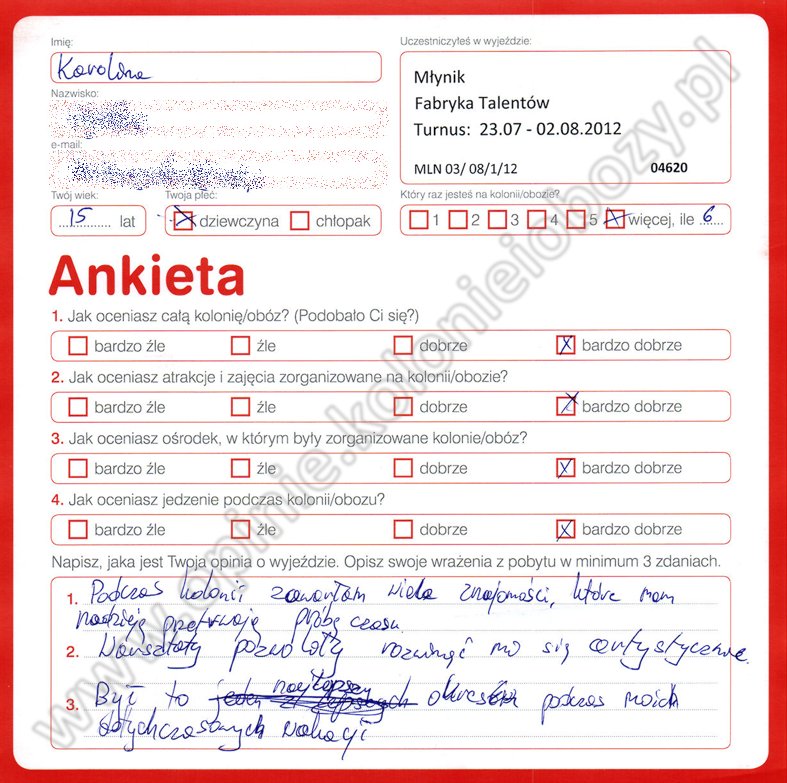 Imię:
Karolina
Nazwisko:
e-mail:
Twój wiek:
15 lat
Twoja płeć:
dziewczyna chłopak
Uczestniczyłeś w wyjeździe:
Młynik
Fabryka Talentów
Turnus: 23.07 - 02.08.2012
MLN 03/ 08/1/12 04620
Który raz jesteś na kolonii/obozie?
1 2 3 4 5 więcej, ile 6
Ankieta
1. Jak oceniasz całą kolonię/obóz? (Podobało Ci się?)
bardzo źle źle dobrze bardzo dobrze
2. Jak oceniasz atrakcje i zajęcia zorganizowane na kolonii/obozie?
bardzo źle źle dobrze bardzo dobrze
3. Jak oceniasz ośrodek, w którym były zorganizowane kolonie/obóz?
bardzo źle źle dobrze bardzo dobrze
4. Jak oceniasz jedzenie podczas kolonii/obozu?
bardzo źle źle dobrze bardzo dobrze
Napisz, jaka jest Twoja opinia o wyjeździe. Opisz swoje wrażenia z pobytu w minimum 3 zdaniach.
1. Podczas kolonii zawarłam wiele znajomości, które mam
nadzieję przetrwają próbę czasu.
2. Warsztaty pozwoliły rozwinąć mi się artystycznie.
najlepszy
3. Był to okres podczas moich
dotychczasowych wakacji
www.opinie.kolonieiobozy.pl